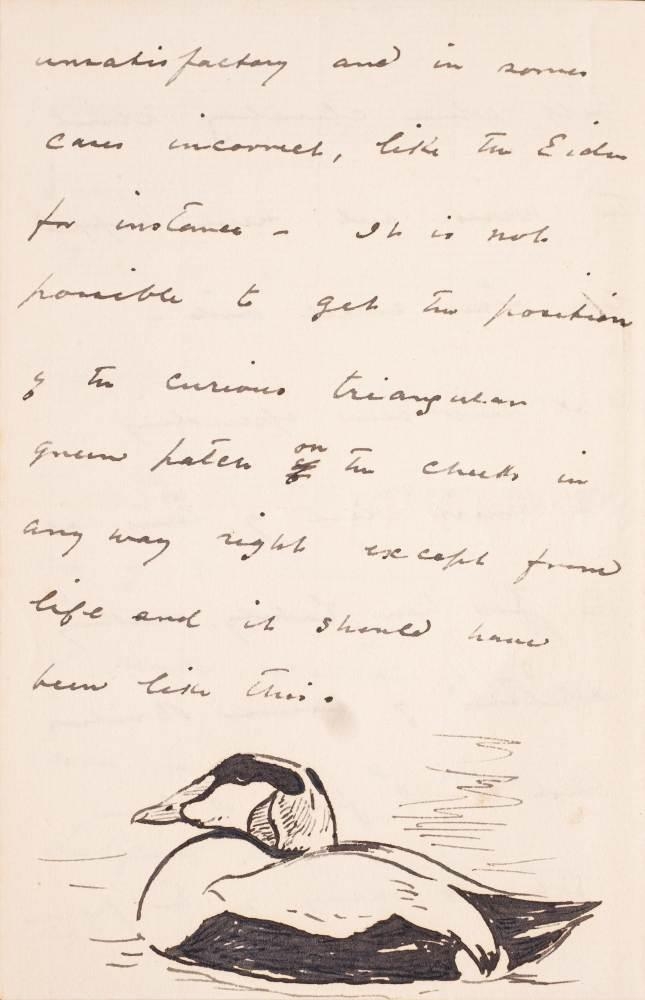 unsatisfactory and in some
cases incorrect, like the Eider
for instance - It is not
possible to get the position
of the curious triangular
green patch on the cheeks in
any way right except from
life and it should have
been like this.